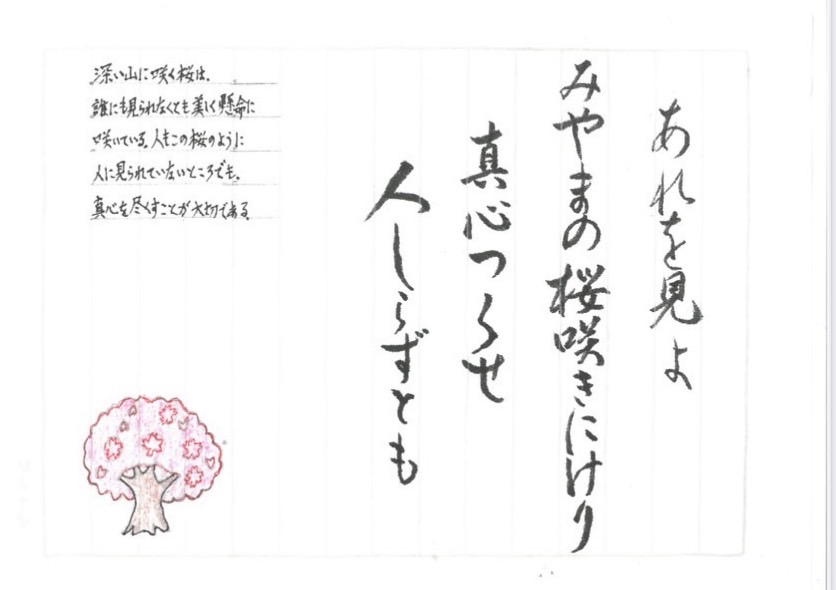 あれを見よ
みやまの桜咲きにけり
真心つくせ
人しらずとも
深い山に咲く桜は、
誰にも見られなくても美しく懸命に
咲いている。人もこの桜のように
人に見られていないところでも、
真心を尽くすことが大切である。